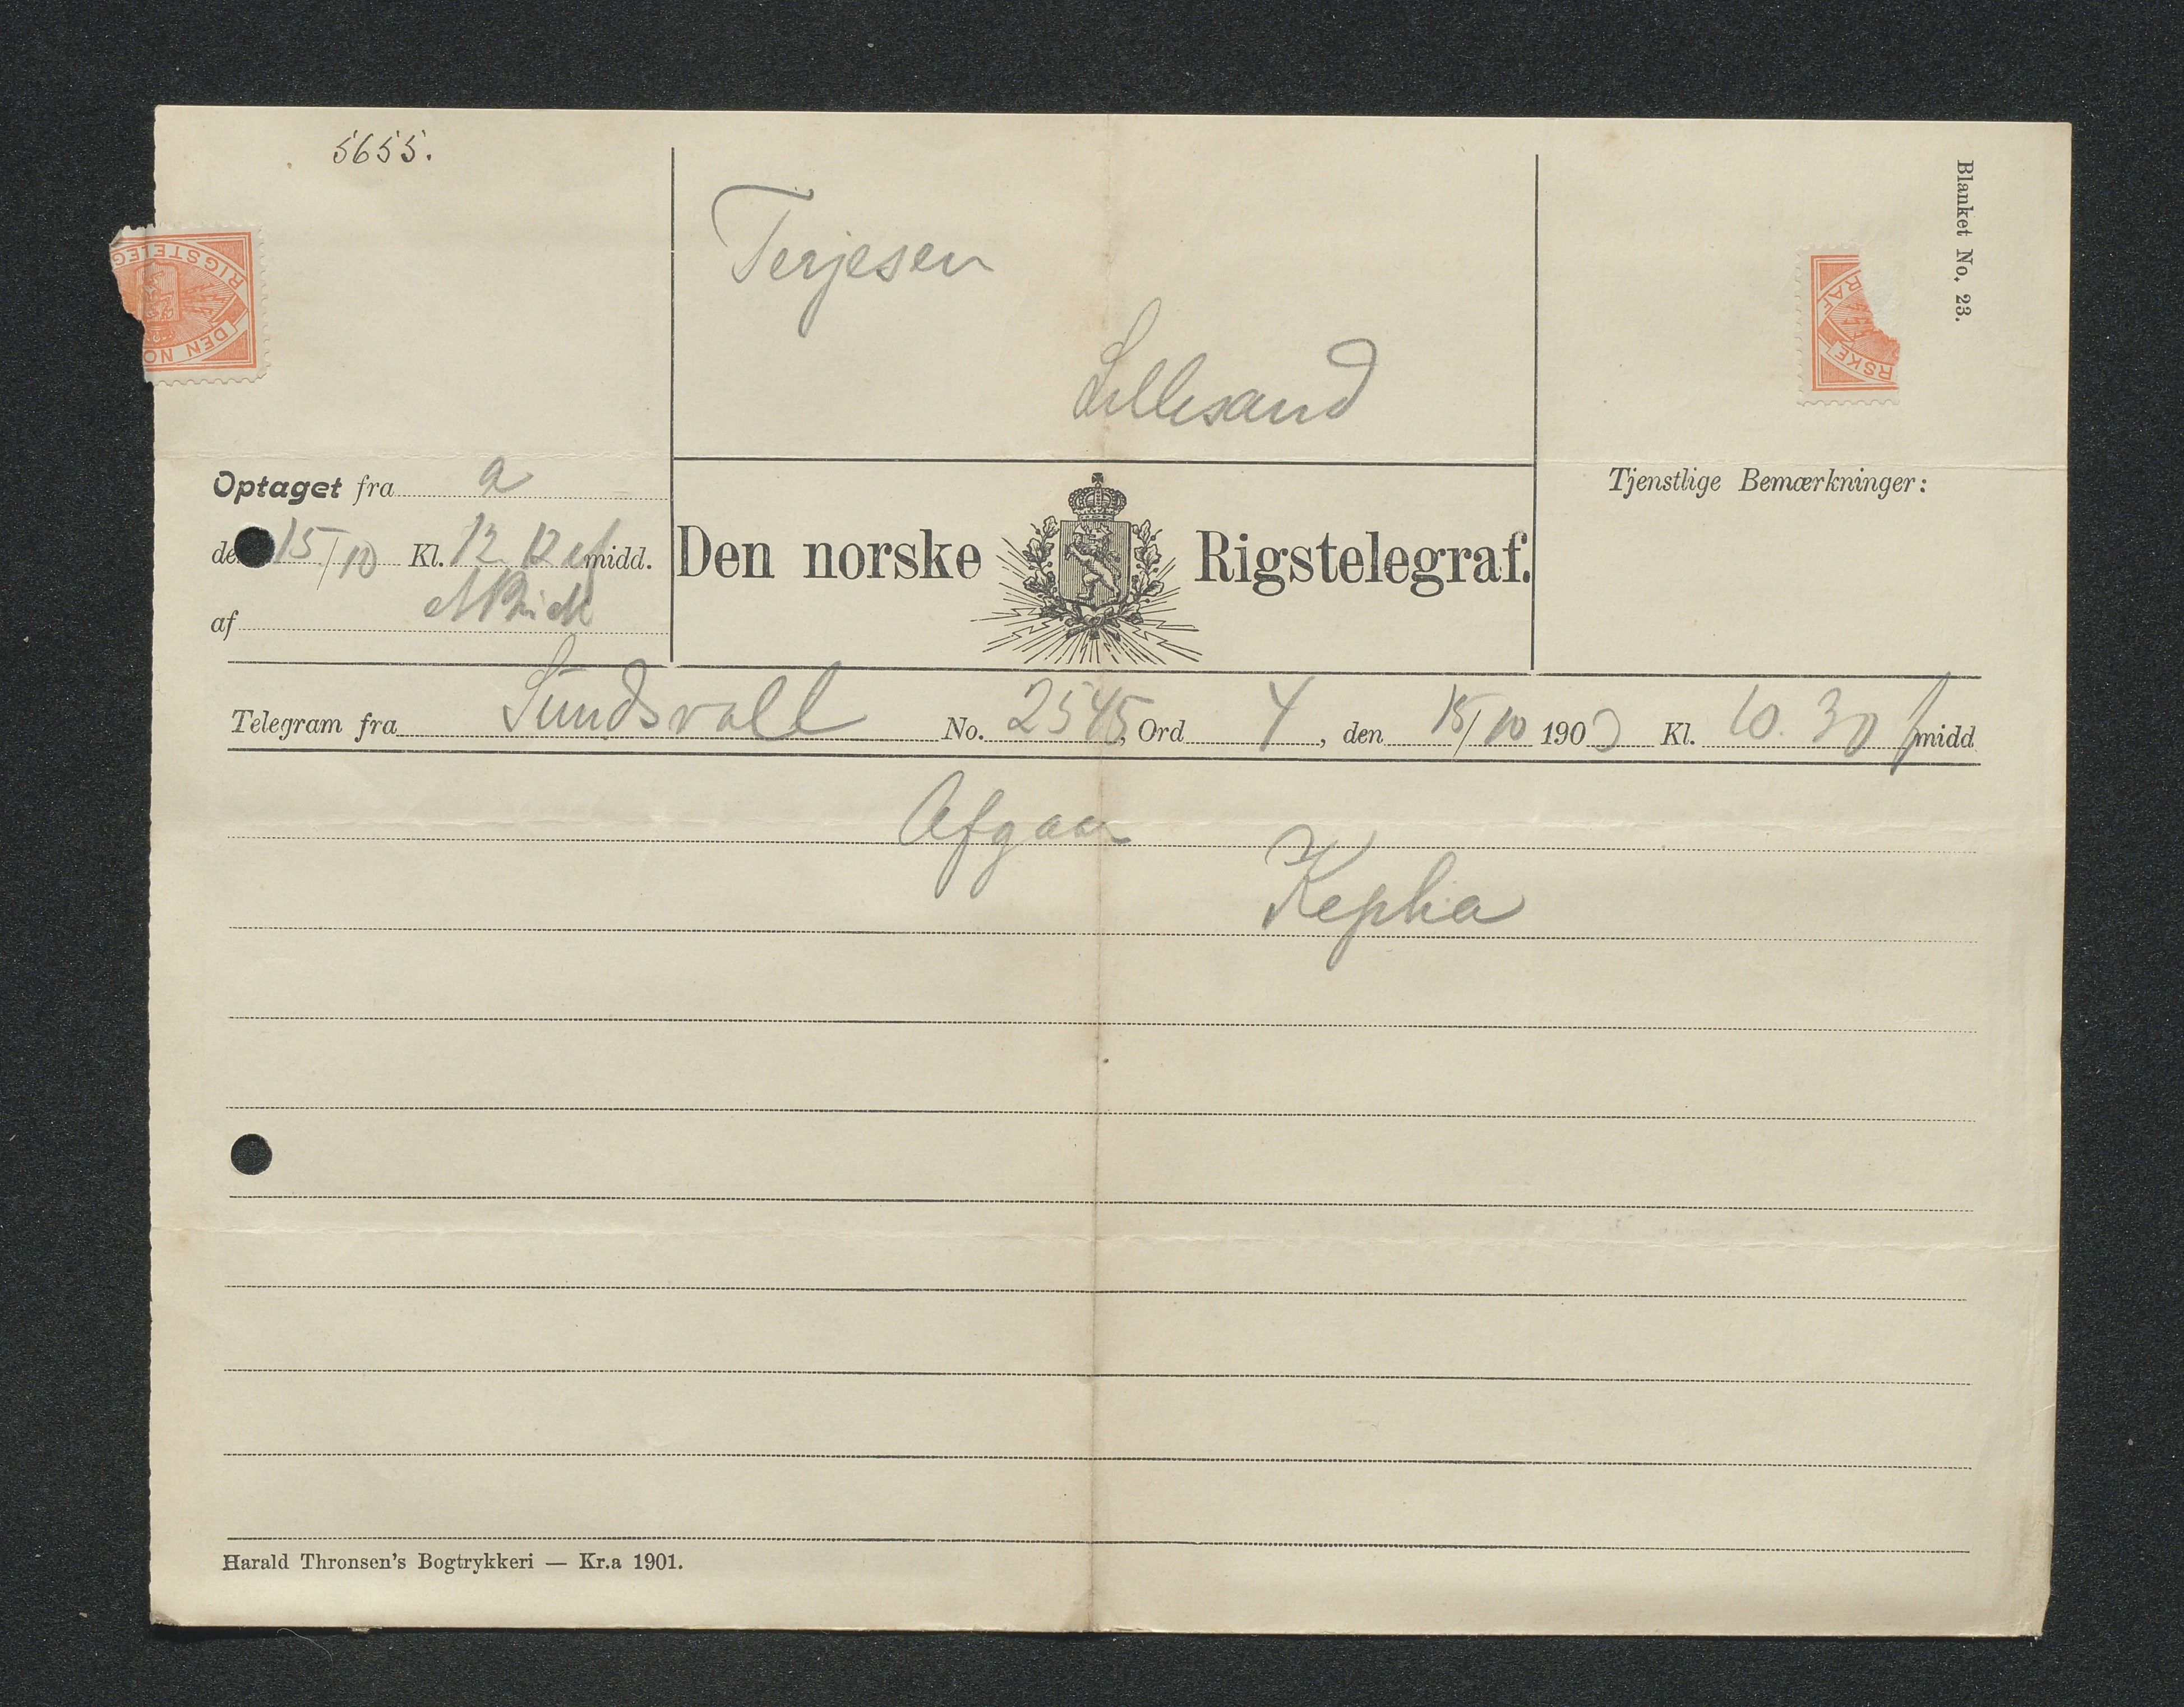 5655.
Blanket No. 23.
RIGSTELEG
DEN NO
RAF
RSKE
Terjesen
Lillesand
Optaget fra a
den 15/10 Kl. 12 12 ef midd.
af
Tjenstlige Bemærkninger:
Den norske Rigstelegraf.
Telegram fra Sundsvall No. 2545, Ord 4, den 15/10 1903 Kl. 10.30 f midd
Afgaar
Kepha
Harald Thronsen's Bogtrykkeri — Kr.a 1901.